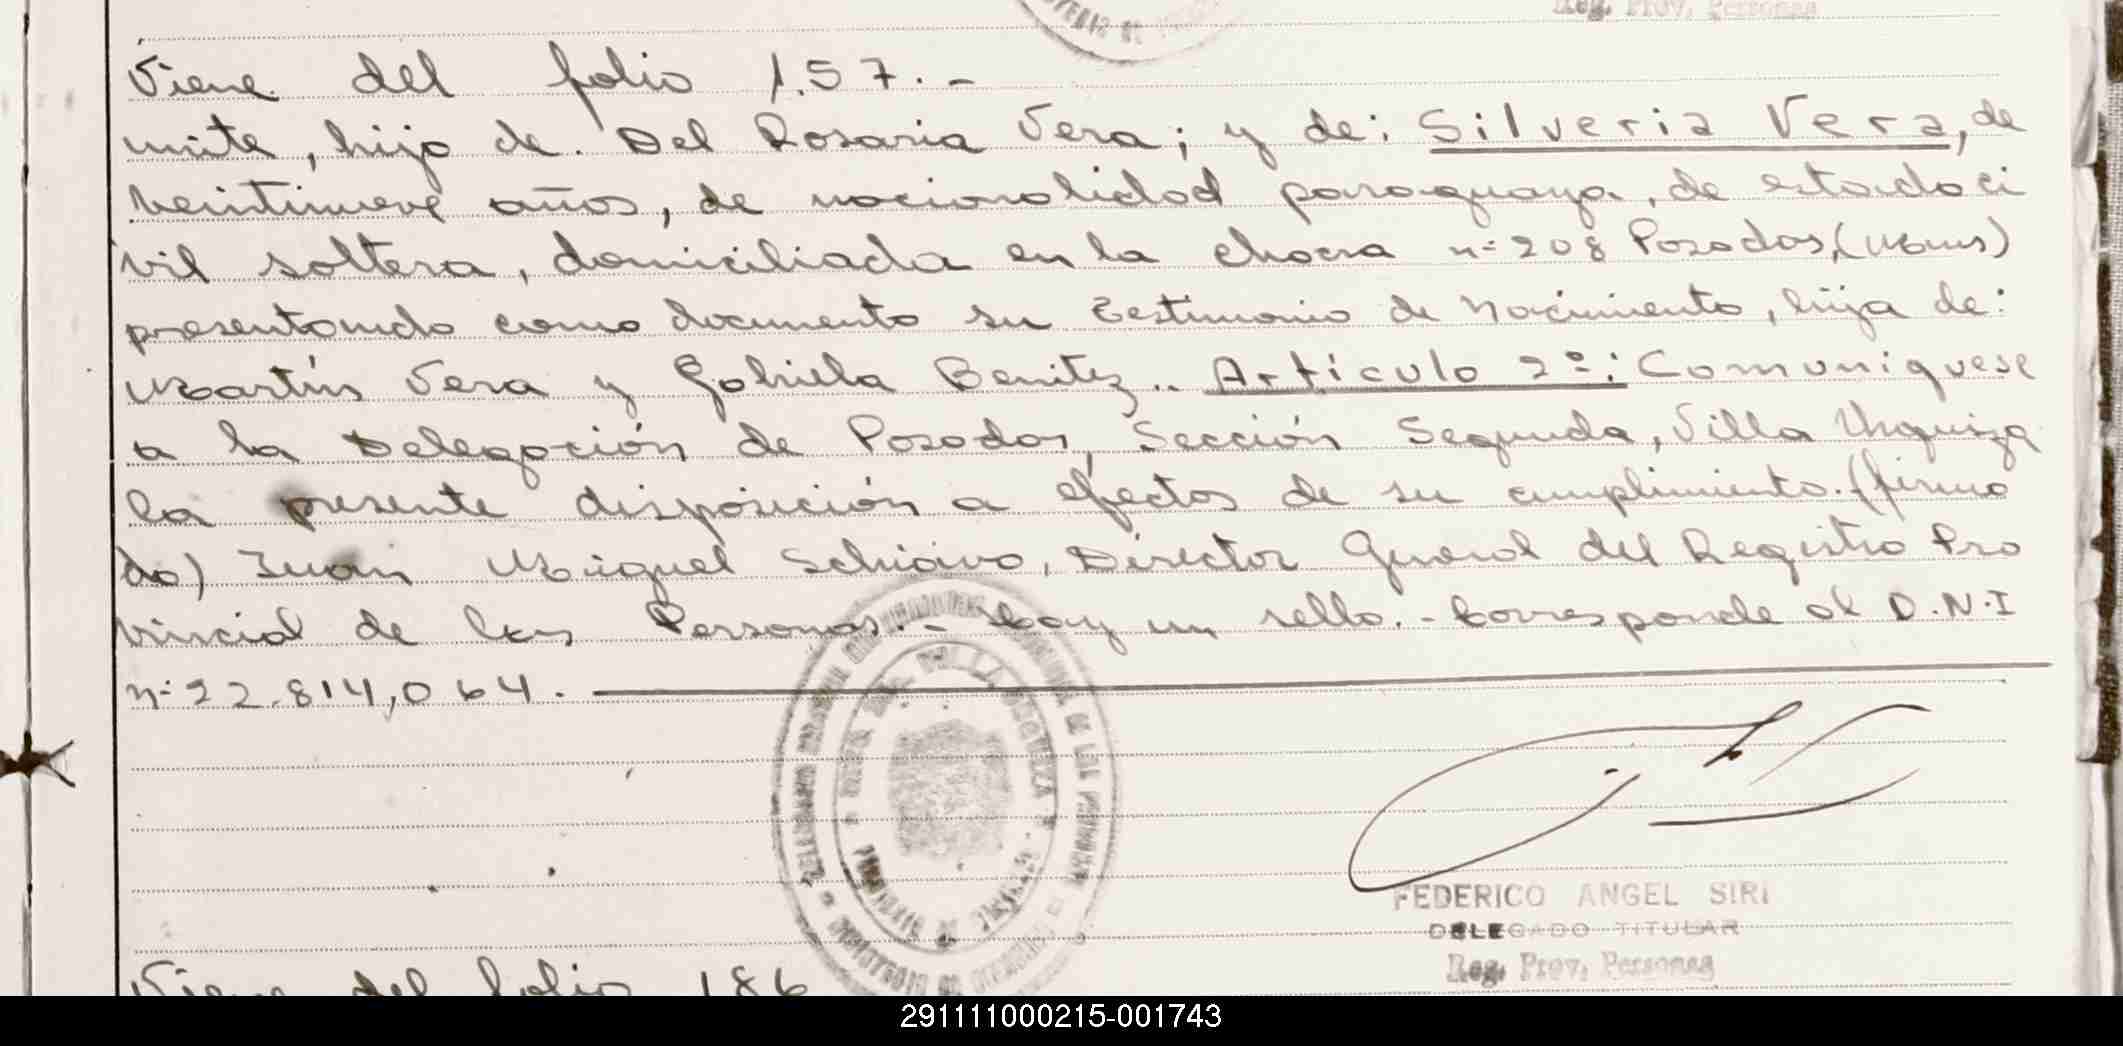 Reg. Prov. Personas
Viene del folio 157.-
mite, hijo de. Del Rosario Vera; y de: Silveria Vera, de
veintinueve años, de nacionalidad paraguaya, de estado ci
vil soltera, domiciliada en la chacra nº 208 Posadas, (Mnes)
presentando como documento su Testimonio de Nacimiento, hija de:
Martín Vera y Gabriela Benitez.. Artículo 2º: Comuníquese
a la Delegación de Posadas, Sección Segunda, Villa Urquiza
la presente disposición a efectos de su cumplimiento. (firma
do) Juan Miguel Schiavo, Director General del Registro Pro
vincial de las Personas.- Hay un sello.- Corresponde al D.N.I
nº 22.814,064.
FEDERICO ANGEL SIRI
DELEGADO TITULAR
Reg. Prov. Personas
Viene del folio 186
291111000215-001743